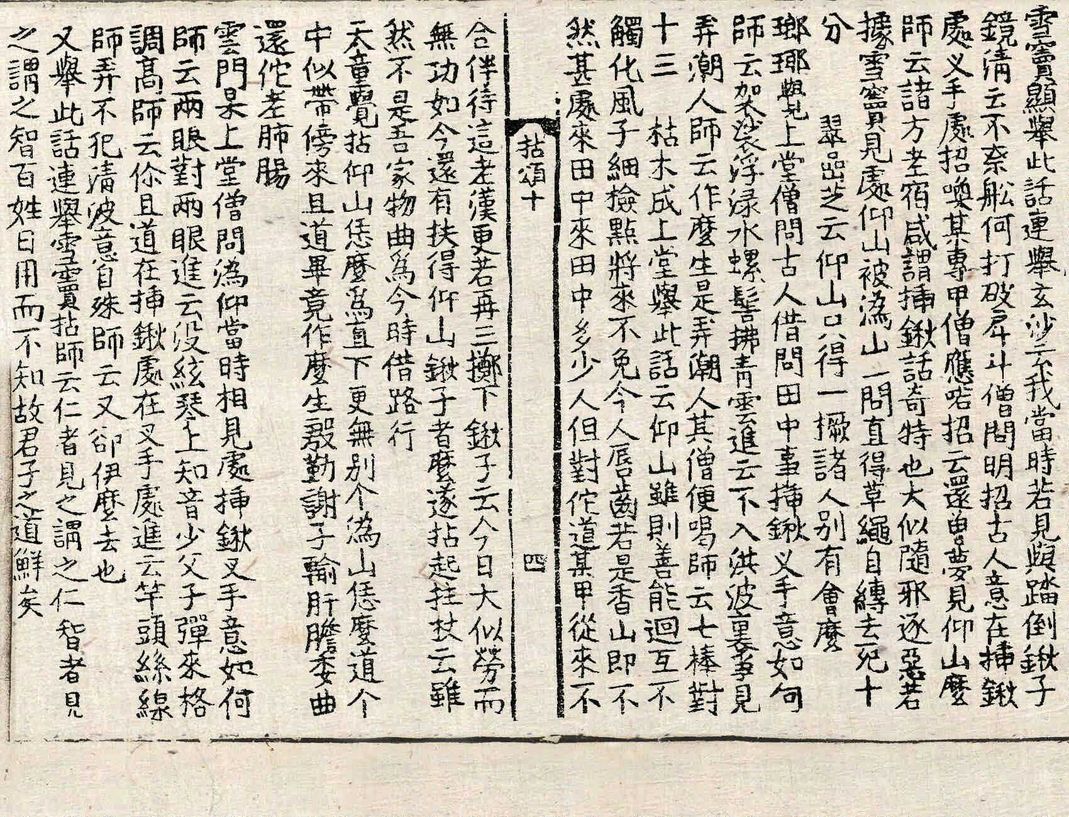 雪竇顯舉此話連舉玄沙云我當時若見與踏倒鍬子
鏡淸云不奈舩何打破戽斗僧問明招古人意在揷鍬
處叉手處招喚某專甲僧應喏招云還曽夢見仰山麽
師云諸方老宿咸謂揷鍬話奇特也大似隨邪逐惡若
據雪竇見處仰山被潙山一問直得草繩自縛去死十
分　翠嵓芝云仰山只得一橛諸人別有會麽
瑯瑘覺上堂僧問古人借問田中事揷鍬叉手意如何
師云袈裟浮渌水螺髻拂靑雲進云不入洪波裏爭見
弄潮人師云作麽生是弄潮人其僧便喝師云七棒對
十三　枯木成上堂舉此話云仰山雖則善能迴互不
觸化風子細撿點將來不免令人唇齒若是香山即不
然甚處來田中來田中多少人但對佗道某甲從來不
拈頌十　四
合伴待這老漢更若再三擲下鍬子云今日大似勞而
無功如今還有扶得仰山鍬子者麽遂拈起拄杖云雖
然不是吾家物曲爲今時借路行
天童覺拈仰山恁麽爲直下更無別个潙山恁麽道个
中似帶傍來且道畢竟作麽生殷勤謝子輸肝膽委曲
還佗老肺腸
雲門杲上堂僧問潙仰當時相見處揷鍬叉手意如何
師云兩眼對兩眼進云没絃琴上知音少父子彈來格
調高師云伱且道在揷鍬處在叉手處進云竿頭絲線
師弄不犯淸波意自殊師云又卻伊麽去也
又舉此話連舉雪竇拈師云仁者見之謂之仁智者見
之謂之智百姓日用而不知故君子之道鮮矣